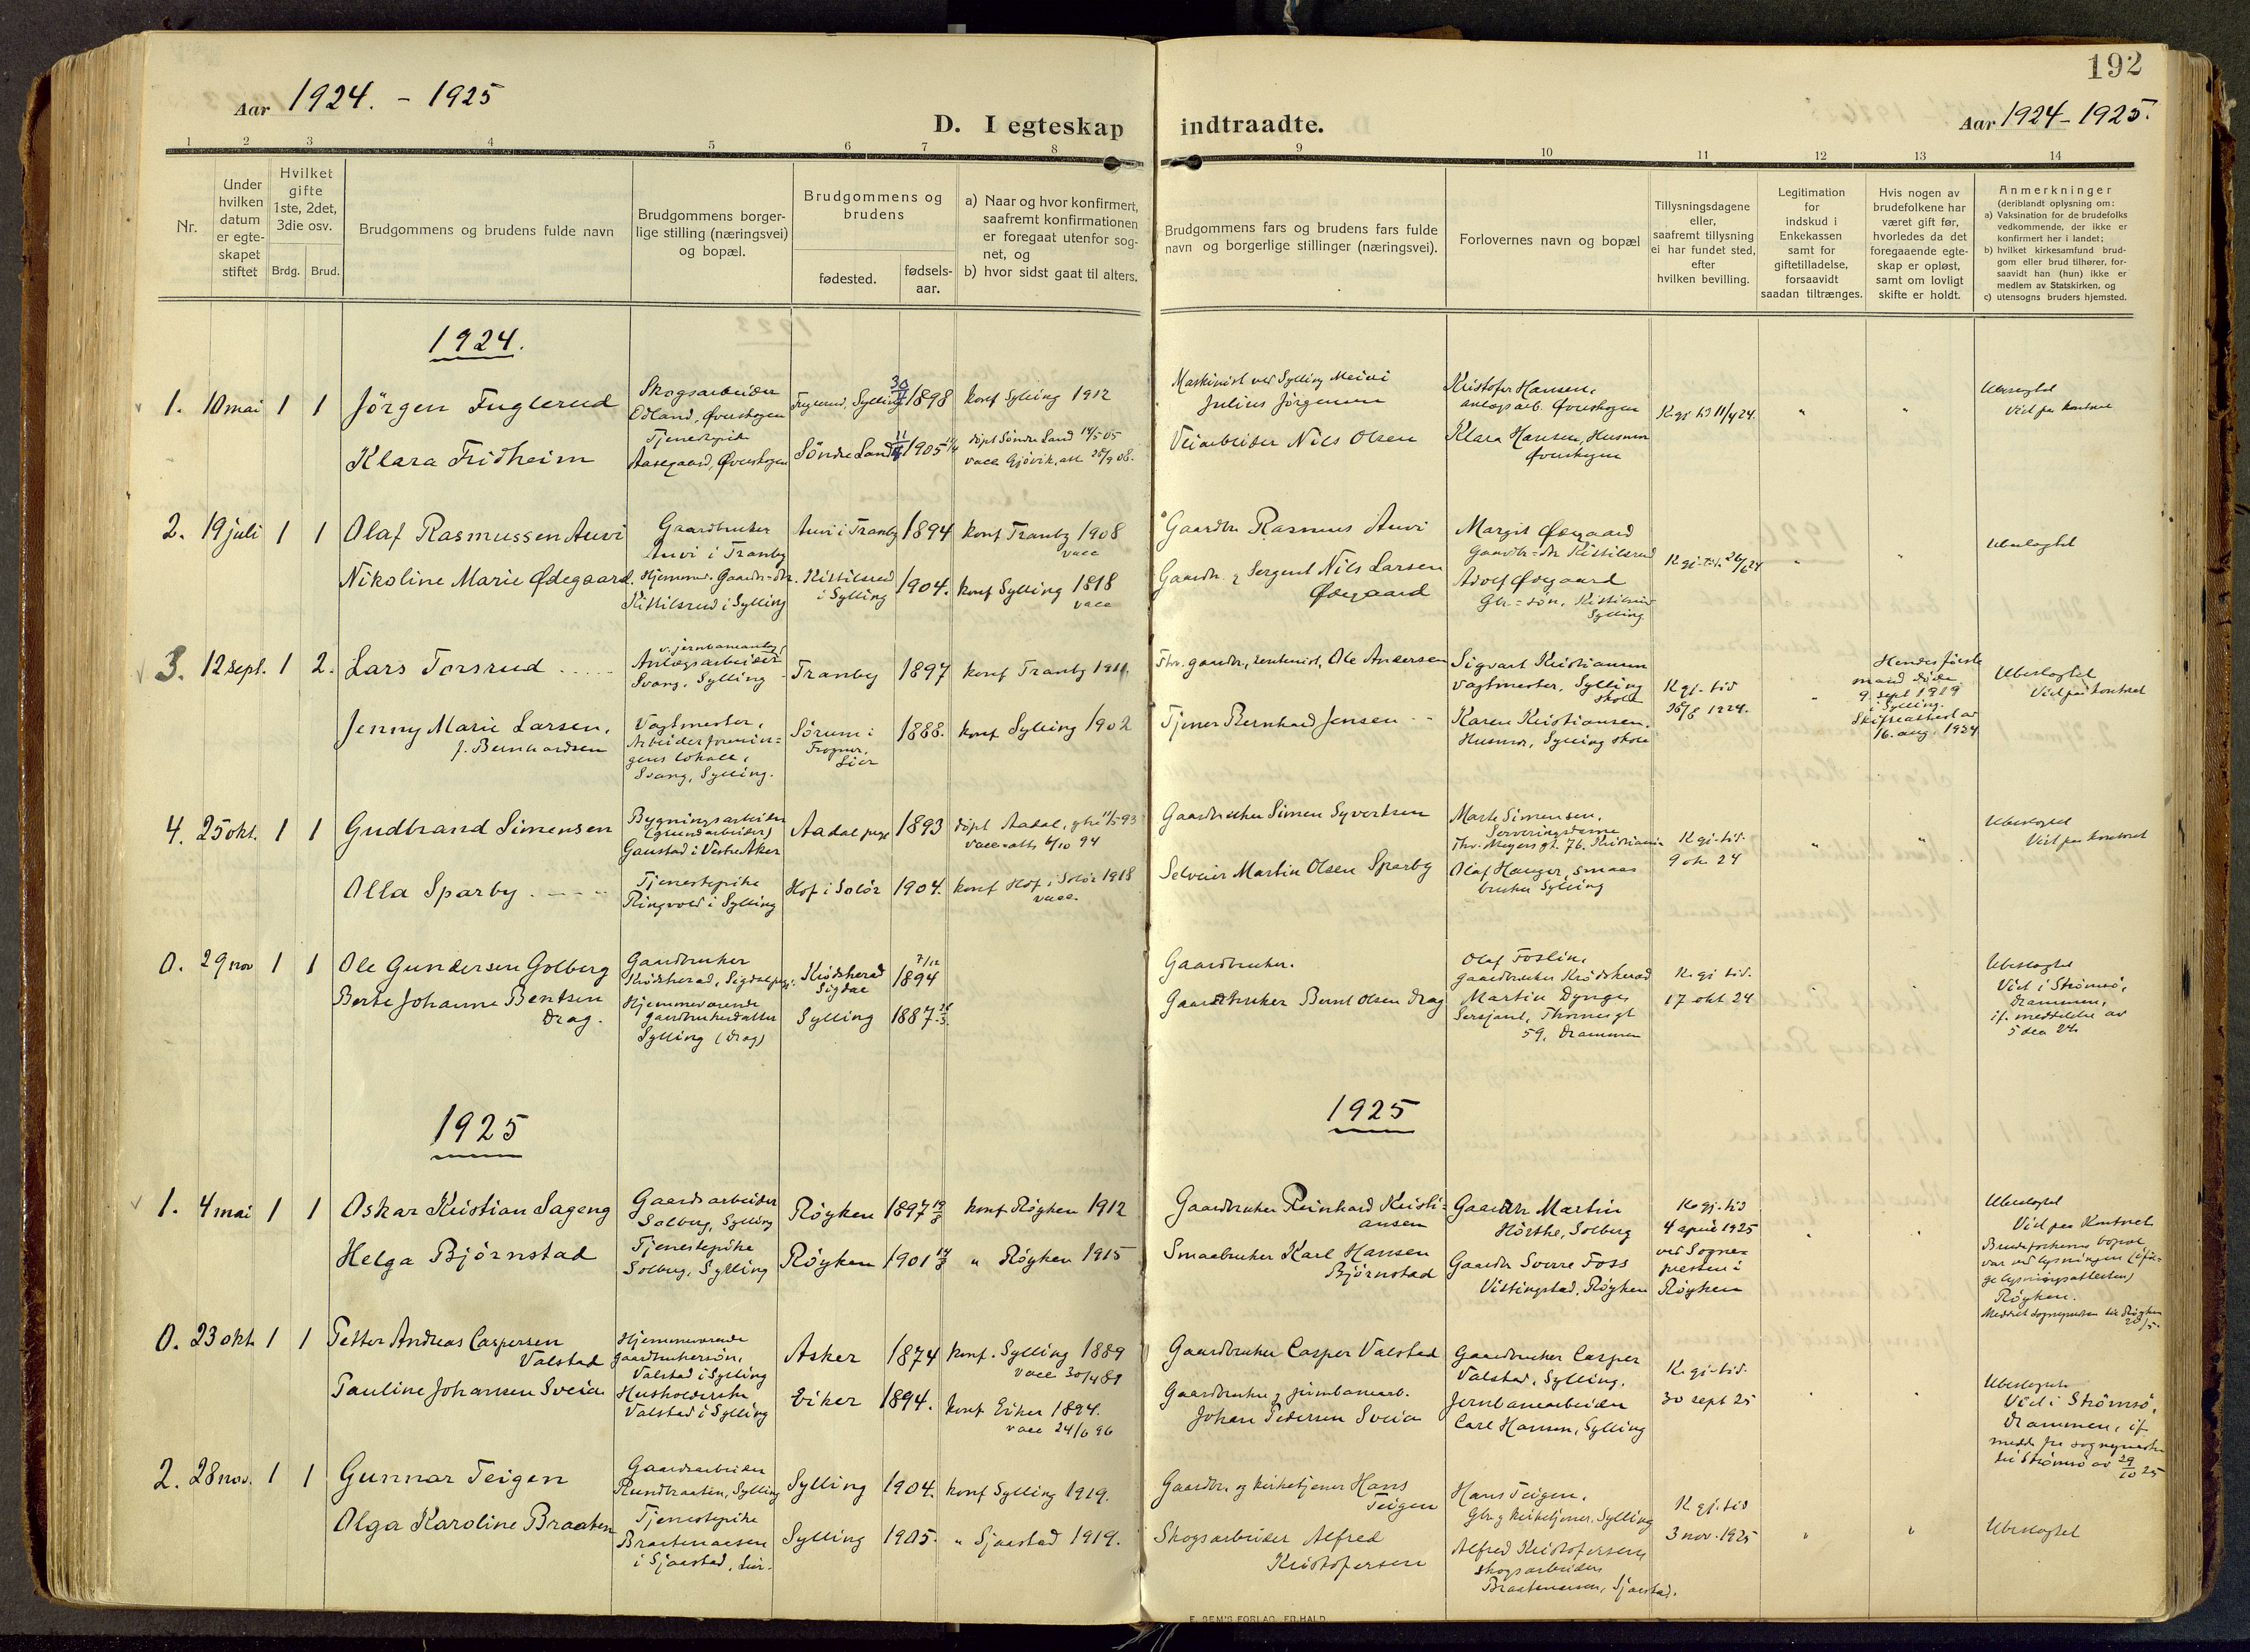 192
Aar 1924. - 1925
Aar 1924 - 1925.
D. I egteskap indtraadte.
1 2 3 4 5 6 7 8 9 10 11 12 13 14
Nr.
Under
hvilken
datum
er egte-
skapet
stiftet
Hvilket
gifte
1ste, 2det,
3die osv.
Brdg. Brud.
Brudgommens og brudens fulde navn
Brudgommens borger-
lige stilling (næringsvei)
og bopæl.
Brudgommens og
brudens
fødested.
fødsels-
aar.
a) Naar og hvor konfirmert,
saafremt konfirmationen
er foregaat utenfor sog-
net, og
b) hvor sidst gaat til alters.
Brudgommens fars og brudens fars fulde
navn og borgerlige stillinger (næringsvei).
Forlovernes navn og bopæl
Tillysningsdagene
eller,
saafremt tillysning
ei har fundet sted,
efter
hvilken bevilling.
Legitimation
for
indskud i
Enkekassen
samt for
giftetilladelse,
forsaavidt
saadan tiltrænges.
Hvis nogen av
brudefolkene har
været gift før,
hvorledes da det
foregaaende egte-
skap er opløst,
samt om lovligt
skifte er holdt.
Anmerkninger
(deriblandt oplysning om:
a) Vaksination for de brudefolks
vedkommende, der ikke er
konfirmert her i landet;
b) hvilket kirkesamfund brud-
gom eller brud tilhører, for-
saavidt han (hun) ikke er
medlem av Statskirken, og
c) utensogns bruders hjemsted.
1924.
1. 10 mai 1 1
Jörgen Fuglerud
Skogsarbeider
Odland, Øverskogen
Fuglerud, Sylling
1898
konf Sylling 1912
Maskinist ved Sylling Meieri
Julius Jörgensen
Kristofer Hansen,
anlægsarb. Øverskogen
K. gj. tid 11/4 24
Ubeslegtet
Viet paa kontoret
Klara Fridheim
Tjenestepike
Aasegaard, Øverskogen
Söndre Land
1905
döpt Söndre Land 14/5 05
vacc. Gjövik, att 25/9 08.
Veiarbeider Nils Olsen
Klara Hansen, Husmor
Øverskogen
2. 19 juli 1 1
Olaf Rasmussen Auvi
Gaardbruker
Auvi i Tranby
Auvi i Tranby
1894
konf Tranby 1908
vacc
Gaardbr. Rasmus Auvi
Margit Ødegaard
Gaardbr=dtr Kittilsrud
K. gj. tid. 26/6 24
Ubeslegtet
Nikoline Marie Ødegaard
Hjemmev. Gaardbr=dtr.
Kittilsrud i Sylling
Kittilsrud
i Sylling
1904.
konf Sylling 1818
vacc
Gaardbr. og Sergent Nils Larsen
Ødegaard
Adolf Ødegaard
Gbr=sön, Kittilsrud
Sylling
3. 12 sept. 1 2.
Lars Torsrud
v. jernbaneanlæg
Anlægsarbeider
Svang, Sylling
Tranby
1897
konf Tranby 1911.
Ole Andersen
Sigvart Kristiansen
vagtmester, Sylling
skole
K. gj. tid
26/8 1924.
Hendes første
mand døde
9 sept 1919
i Sylling.
Skifteattest av
16. aug. 1924
Ubeslegtet
Viet paa kontoret
Jenny Marie Larsen,
f. Bernhardsen
Vagtmester,
Arbeiderforenin=
gens lokale,
Svang, Sylling.
Sörum i
Frogner,
Lier
1888.
konf Sylling 1902
Tjener Bernhard Jensen
Karen Kristiansen.
Husmor, Sylling skole
4. 25 okt. 1 1
Gudbrand Simensen
Bygningsarbeider
(grundarbeider)
Gaustad i Vestre Aker
Aadal pgd
1893
döpt Aadal,
vacc=att. 6/10 94
Gaardbruker Simen Syvertsen
Marte Simensen,
Serveringsdame
Thv. Meyers gt. 76. Kristiania
K. gj. tid.
9 okt 24
Ubeslegtet
Viet paa kontoret
Olla Sparby
Tjenestepike
Ringvold i Sylling
Hof i Solör
1904.
konf Hof i Solör 1918
vacc.
Selveier Martin Olsen Sparby
Olaf Hauger, smaa=
bruker Sylling
0. 29 nov 1 1
Ole Gundersen Golberg
Gaardbruker
Krödsherad, Sigdal pgd.
Krödsherad
Sigdal
7/12
1894
Gaardbruker.
Olaf Foslin,
gaardbruker Krödsherad
K. gj. tid.
17 okt 24
Ubeslegtet
Viet i Strömsö,
Drammen,
if. meddelelse av
5 des 24
Berte Johanne Bentsen
Drag.
Hjemmeværende
gaardbrukerdatter
Sylling (Drag)
Sylling
1887
Gaardbruker Bernt Olsen Drag
Martin Dynge
Sersjant,
59, Drammen
1925
1925
1. 4 mai 1 1
Oskar Kristian Sageng
Gaardsarbeider
Solberg, Sylling
Röyken
1897
konf Röyken 1912
Gaardbruker Reinhard Kristi=
ansen
Gaardbr Martin
Hörthe, Solberg
K. gj. tid
4 april 1925
ved Sogne=
presten i
Röyken
Ubeslegtet
Viet paa Kontoret
Brudefolkenes bopæl
var ved lysningen (iföl=
ge lysningsattesten)
Röyken.
Meddelt sognepresten til Röyken
20/5.
Helga Björnstad
Tjenestepike
Solberg, Sylling
Röyken
1901
" Röyken 1915
Smaabruker Karl Hansen
Björnstad
Gaardbr Sverre Foss
Vittingstad, Röyken
0. 23 okt. 1 1
Petter Andreas Caspersen
Valstad
Hjemmeværende
gaardbrukersön,
Valstad i Sylling
Asker
1874
konf. Sylling 1889
vacc 30/4 81
Gaardbruker Casper Valstad
Gaardbruker Casper
Valstad, Sylling.
K. gj. tid.
30 sept 25
Ubeslegtet
Viet i Strömsö,
Drammen, if.
medd. fra sognepresten
til Strömsö av 29/10 25
Pauline Johansen Sveia
Husholderske
Valstad i Sylling
Eiker
1894.
konf Eiker 1894.
vacc 24/6 96
Gaardbruker og jernbanearb.
Johan Pedersen Sveia
Jernbanearbeider
Carl Hansen, Sylling
2. 28 nov. 1 1
Gunnar Teigen
Gaardsarbeider
Rundbraaten, Sylling
Sylling
1904.
konf Sylling 1919.
Gaardbr. og kirketjener Hans
Teigen
Hans Teigen,
Gbr. og kirketjener. Sylling
K. gj. tid
3 nov. 1925
Ubeslegtet
Olga Karoline Braaten
Tjenestepike
Braatenaasen
i Sjaastad, Lier.
Sylling
1905.
" Sjaastad 1919.
Skogsarbeider Alfred
Kristofersen
Alfred Kristofersen
skogsarbeider
Braatenaasen, Sjaastad.
E. SEM'S FORLAG, FR.HALD